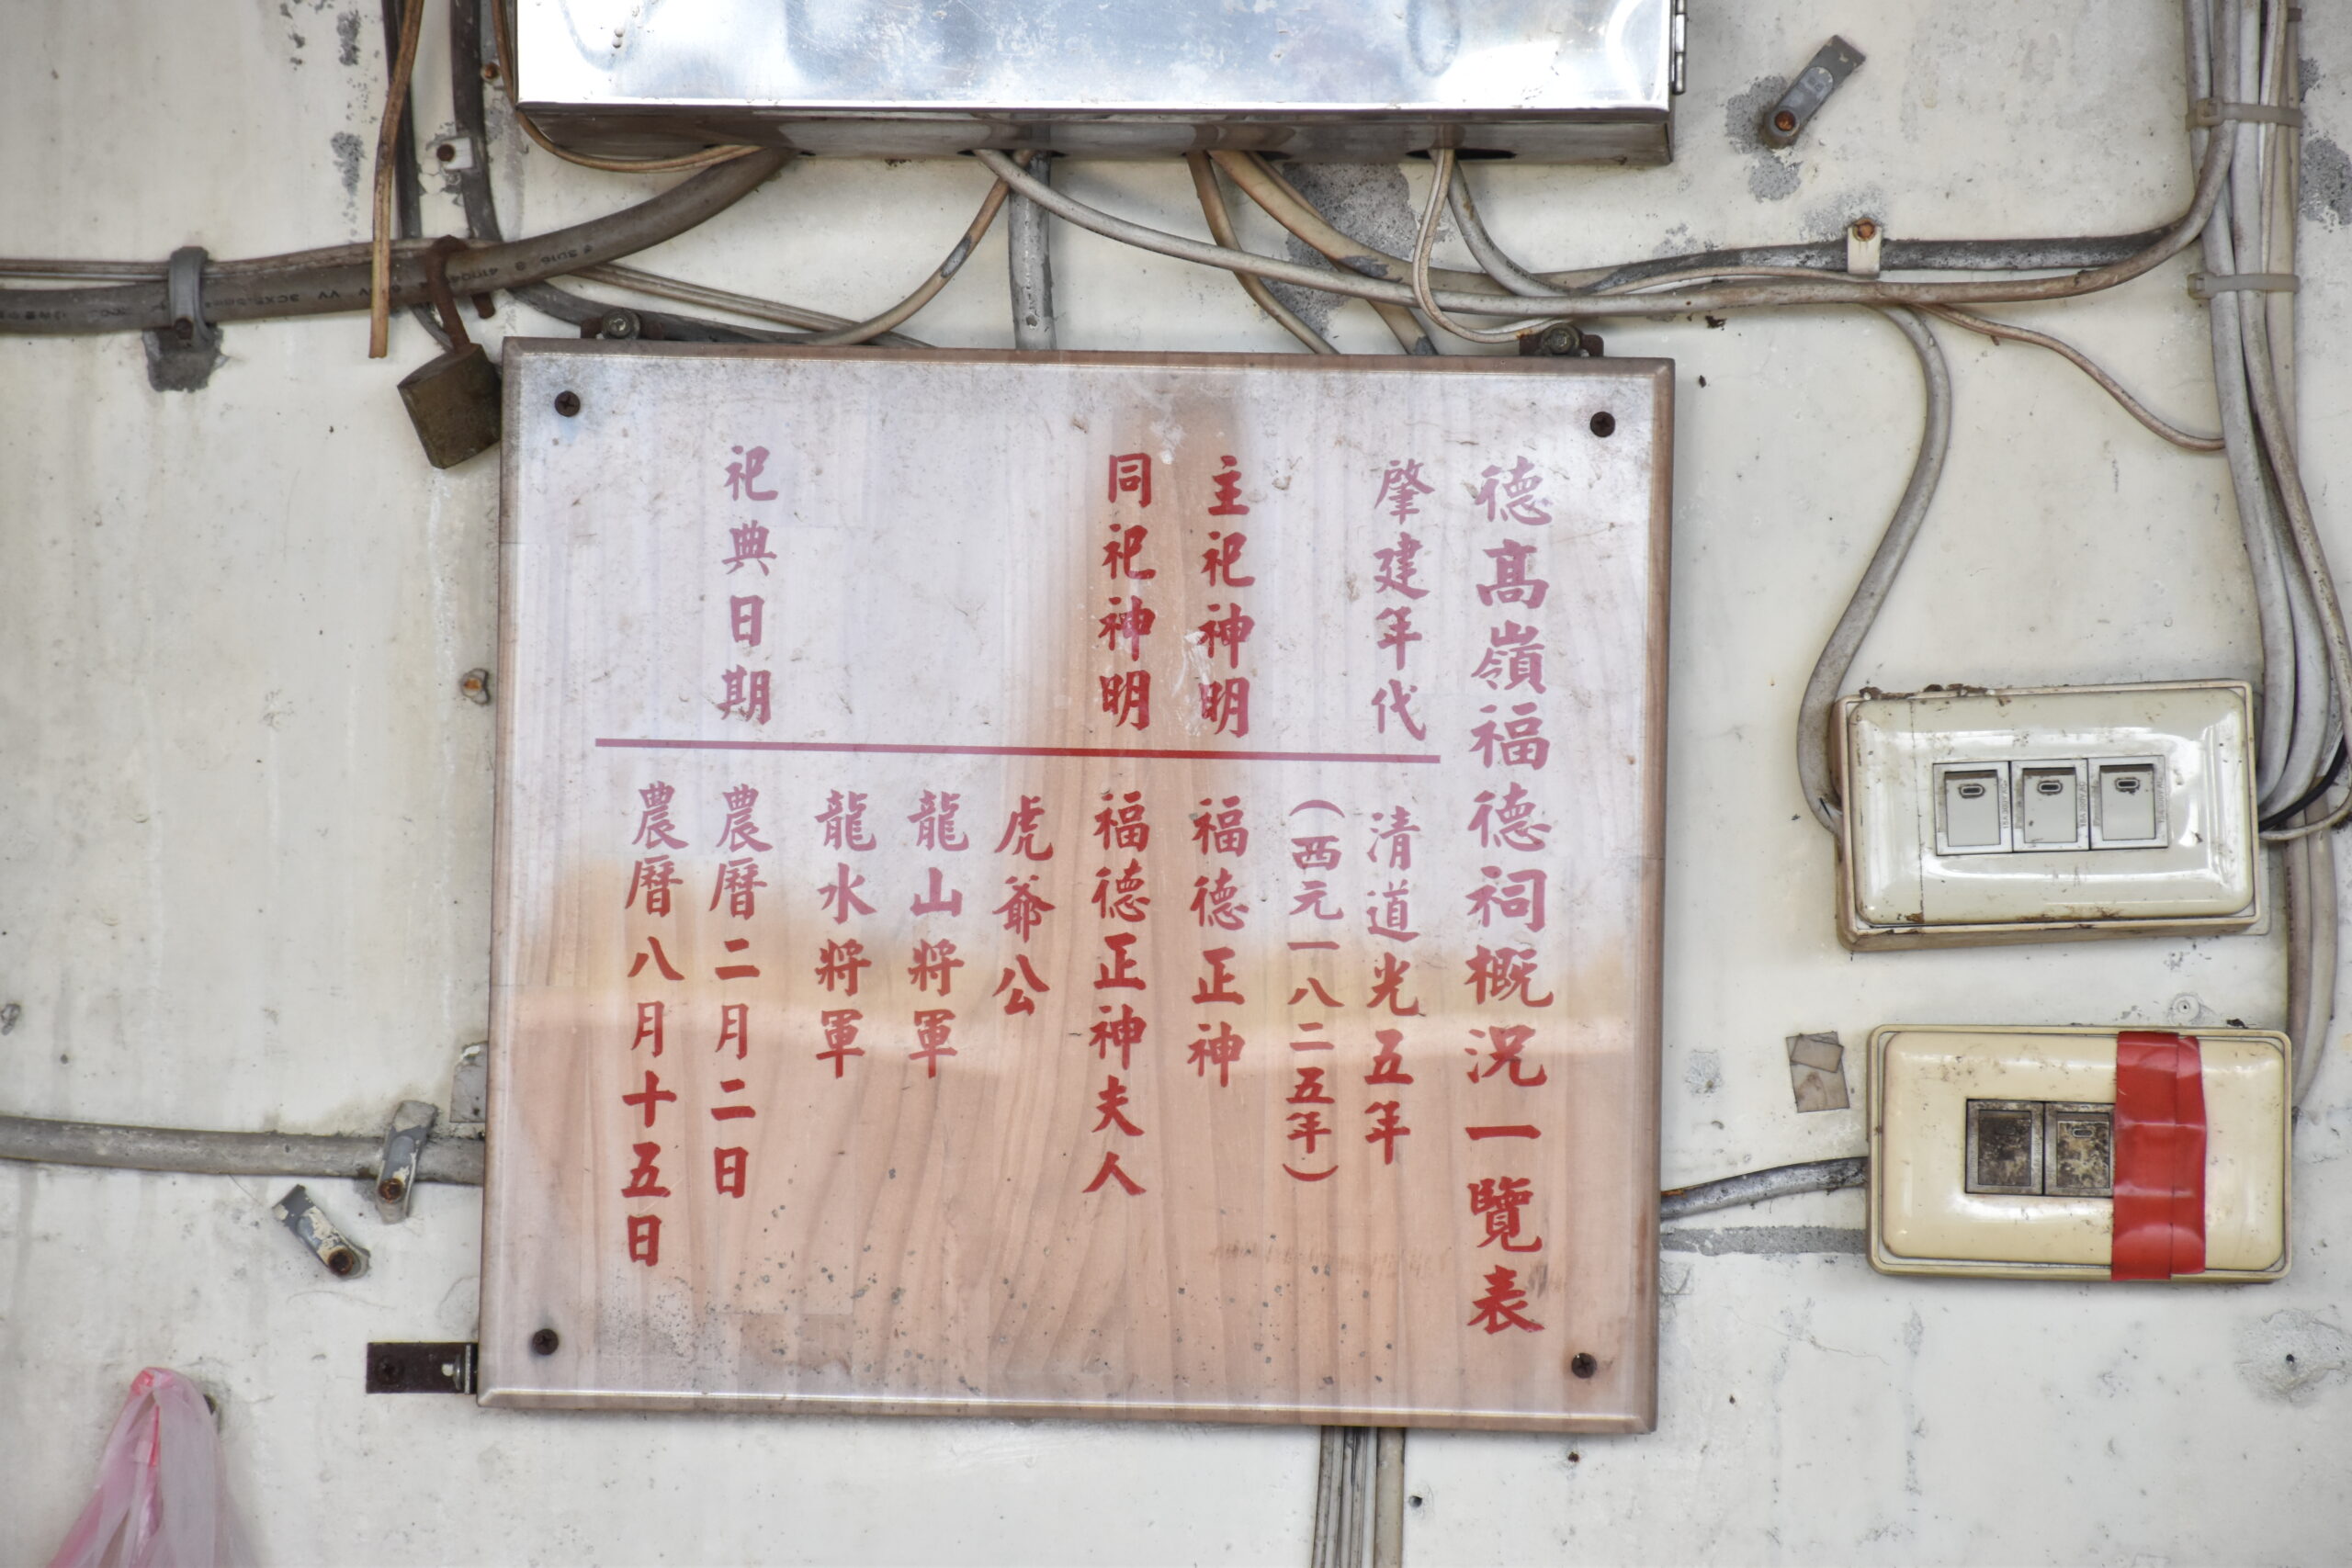 德高嶺福德祠概況一覽表
肇建年代
清道光五年
（西元一八二五年）
主祀神明
福德正神
同祀神明
福德正神夫人
虎爺公
龍山將軍
龍水將軍
祀典日期
農曆二月二日
農曆八月十五日